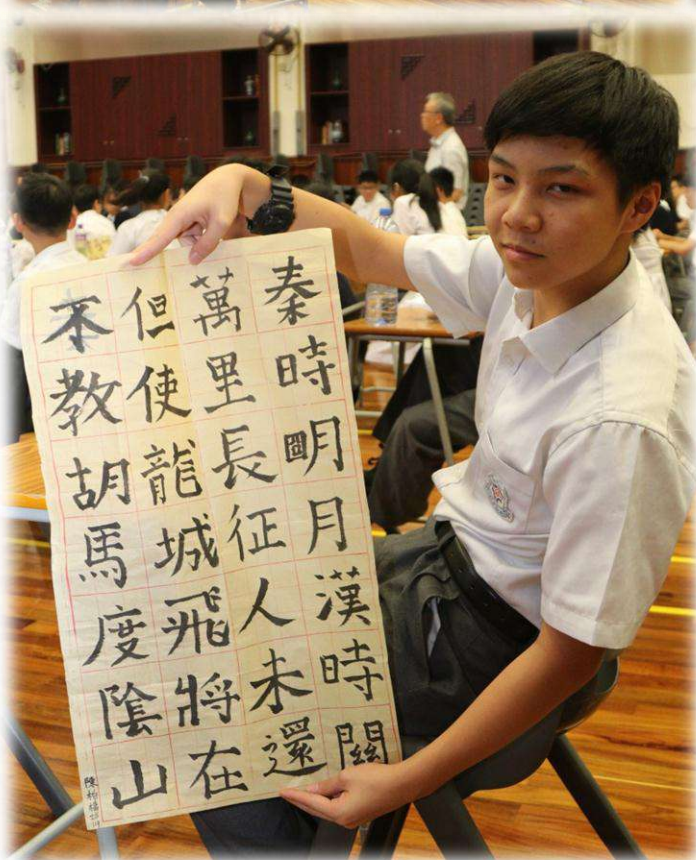 秦時明月漢時關
萬里長征人未還
但使龍城飛將在
不教胡馬度陰山
陳